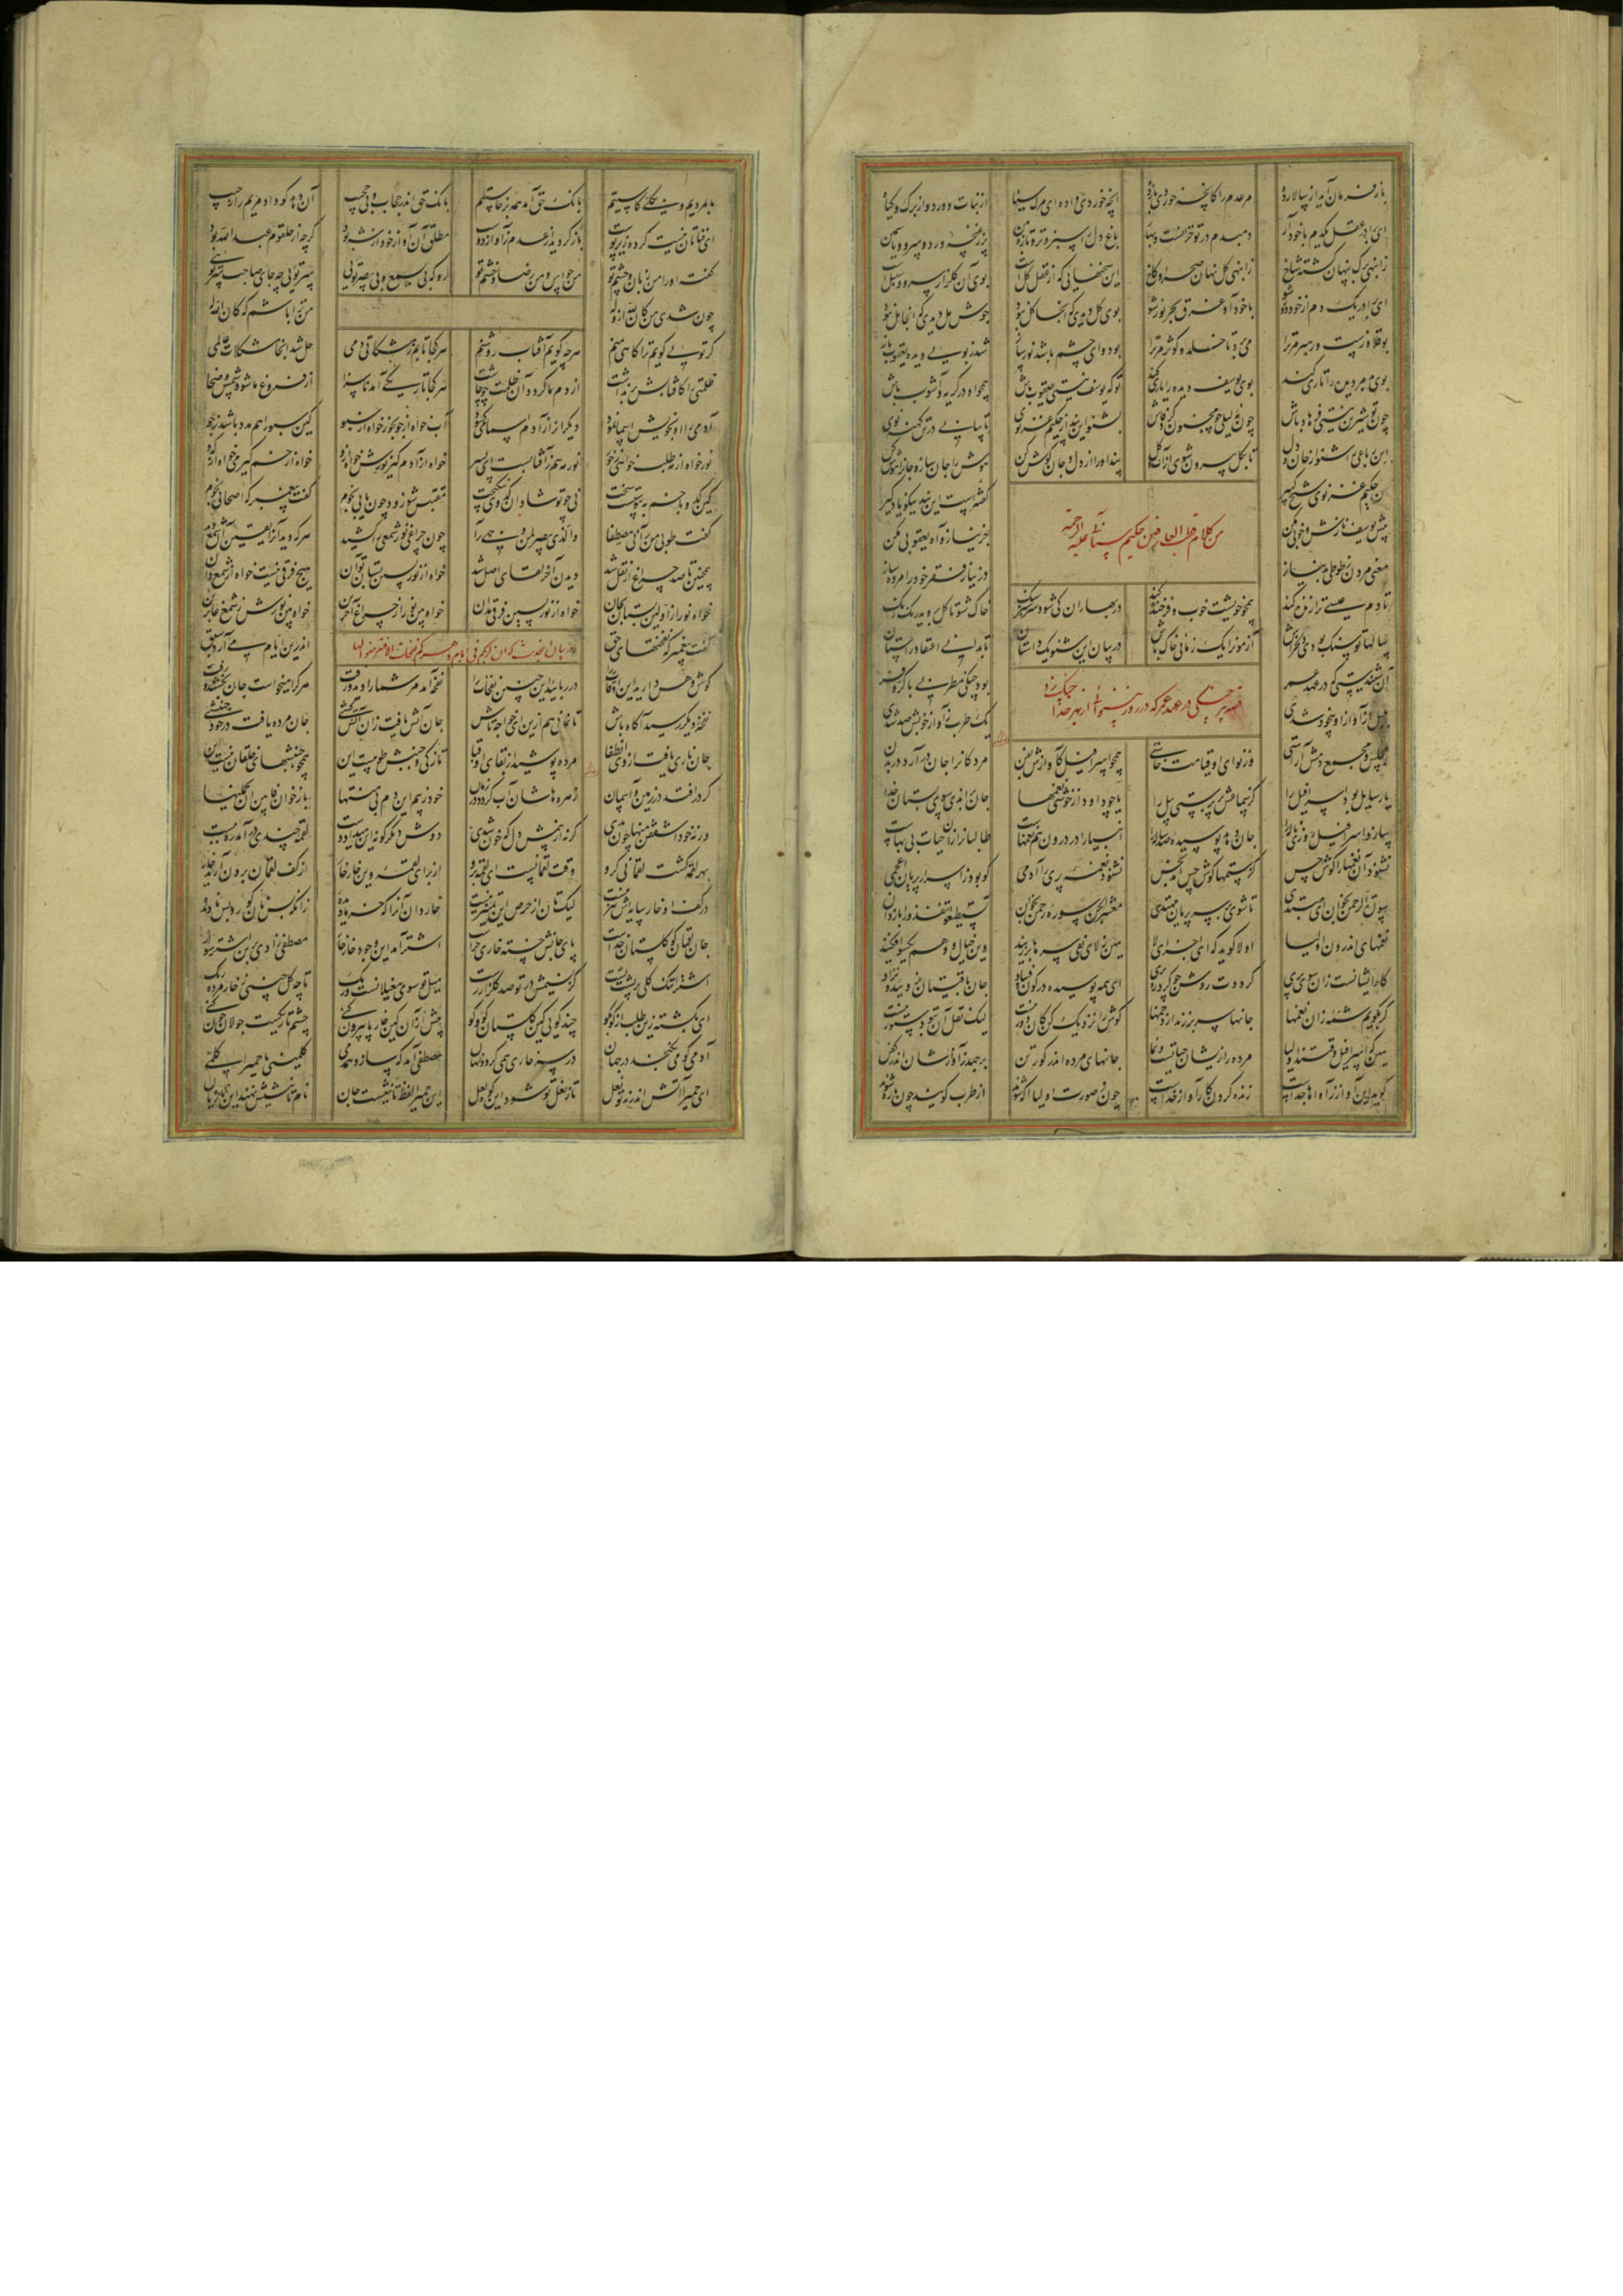 باز فرمان آید از سالار ده مر عدم را کانچه خوردی باز ده انچه خوردی واده ای مرک سیاه از نبات و ورد و از برک و کیاه
ای برادر عقل یکدم با خود آر دمبدم در تو خزانست و بهار باغ دل را سبز و تر و تازه بین پر ز غنچه ورد و سرو و یاسمین
ز انبهی برک پنهان کشته شاخ ز انبهی کل نهان صحرا و کاخ این سخنهایی که از عقل کلست بوی آن کلزار و سرو و سنبلست
ای برادر یک دم از خود دور شو با خود آ و غرق بحر نور شو بوی کل دیدی که آنجا کل نبود جوش مل دیدی که آنجا مل نبود
بو قلاوزست و رهبر مر ترا می برد تا خلد و کوثر مر ترا بو دوای چشم باشد نورساز شد ز بویی دیده یعقوب باز
بوی بد مر دیده را تاری کند بوی یوسف دیده را یاری کند تو که یوسف نیستی یعقوب باش همچو او در کریه و آشوب باش
چون تو شیرین نیستی فرهاد باش چون نه لیلی چو مجنون کرد فاش بشنو این پند از حکیم غزنوی تا بیابی در تن کهنه نوی
این رباعی را شنو از جان و دل تا بکل بیرون شوی از آب و کل پند او را از دل و جان کوش کن هوش را جان ساز و جان را هوش کن
آن حکیم غزنوی شیخ کبیر گفته است این پند نیکو یاد کیر
من کلام قطب العارفین حکیم سنائی علیه الرحمة
پیش یوسف نازش و خوبی مکن جز نیاز و آه یعقوبی مکن
معنی مردن ز طوطی بد نیاز در نیاز و فقر خود را مرده ساز
تا دم عیسی ترا زنده کند همچو خویشت خوب و فرخنده کند در بهاران کی شود سرسبز سنک خاک شو تا کل بروید رنک رنک
سالها تو سنک بودی دلخراش آزمون را یک زمانی خاک باش در بیان این شنو یک داستان تا بدانی اعتقاد راستان
قصه پیر چنکی در عهد عمر که در روز بینوائی از بهر خدا چنک زد
آن شنیدستی که در عهد عمر بود چنکی مطربی با کر و فر
بلبل از آواز او بیخود شدی یک طرب ز آواز خوبش صد شدی
مجلس و مجمع دمش آراستی وز نوای او قیامت خاستی همچو اسرافیل کآوازش بفن مردکانرا جان درآرد در بدن
یا رسایل بود اسرافیل را کز سماعش پر برستی پیل را یا چو داود از خوشی نغمها جان پراندی سوی بستان خدا
سازد اسرافیل روزی ناله را جان دهد پوسیده صدساله را انبیا را در درون هم نغمهاست طالبانرا زان حیات بی بهاست
نشنود آن نغمها را کوش حس کز ستمها کوش حس آمد نجس نشنود نغمه پری را آدمی کو بود ز اسرار پریان اعجمی
سورة الرحمن بخوان ای مبتدی تا شوی بر سر پریان مهتدی معشر الجن سوره رحمن بخوان تستطیعوا تنفذوا را باز دان
نغمهای اندرون اولیا اولا کوید که ای اجزای لا هین ز لای نفی سرها برزنید وین خیال و وهم یکسو افکنید
کار ایشانست زان سوی پری کرددت روشن چو کردی ره بری ای همه پوسیده در کون و فساد جان باقیتان نرویید و نزاد
کر بکویم شمه زان نغمها جانها سر برزند از دخمها کوش را نزدیک کن کان دور نیست لیک نقل آن بتو دستور نیست
هین که اسرافیل وقتند اولیا مرده را زیشان حیاتست و نما جانهای مرده اندر کور تن برجهد ز آوازشان اندر کفن
کوید این آواز ز آواها جداست زنده کردن کار آواز خداست چون ز صورت اولیا آکه شوند از طرب کویند چون
ما بمردیم و بکلی کاستیم بانک حق آمد همه برخاستیم بانک حق اندر حجاب و بی حجب آن دهد کو داد مریم را ز جیب
ای فناتان نیست کرده زیر پوست باز کردید از عدم ز آواز دوست مطلق آن آواز خود از شه بود کرچه از حلقوم عبد الله بود
کفت او را من زبان و چشم تو من حواس و من رضا و خشم تو رو که بی یسمع و بی یبصر تویی سر تویی چه جای صاحب سر تویی
چون شدی من کان لله از وله من ترا باشم که کان الله له
که تویی کویم ترا کاهی منم هرچه کویم آفتاب روشنم هر کجا تابم ز مشکات دمی حل شد انجا مشکلات عالمی
ظلمتی را کافتابش برنداشت از دم ما کردد آن ظلمت چو چاشت هر کجا تاریکی آمد ناسزا از فروغ ما شود شمس ضحی
آدمی را او بخویش اسما نمود دیکرانرا ز آدم اسما می کشود آب خواه از جو بجو خواه از سبو کین سبو را هم مدد باشد ز جو
نور خواه از مه طلب خواهی ز خور نور مه هم ز آفتابست ای پسر خواه از آدم کیر نورش خواه ازو خواه از خم کیر می خواه از کدو
کین کدو با خنب پیوستست سخت نی چو تو شاد ان کدوی نیکبخت مقتبس شو زود چون یابی نجوم کفت پیغمبر که اصحابی نجوم
کفت طوبی من رآنی مصطفا والذی یبصر لمن وجهی رأی چون چراغی نور شمعی را کشید هر که دید آنرا یقین آن شمع دید
همچنین تا صد چراغ از نقل شد دیدن آخر لقای اصل شد خواه از نور پسین بستان تو آن هیچ فرقی نیست خواه از شمع دان
خواه نور از اولین بستان بجان خواه از نور پسین فرقی مدان خواه بین نور از چراغ آخرین خواه بین نورش ز شمع غابرین
در بیان این حدیث که ان لربکم فی ایام دهرکم نفحات الا فتعرضوا لها
کفت پیغمبر که نفحتهای حق اندرین ایام می آرد سبق
کوش و هش دارید این اوقات را درربایید این چنین نفحات را نفحه آمد مر شما را دید و رفت هر کرا میخواست جان بخشید و رفت
نفحه دیکر رسید آکاه باش تا ازین هم وانمانی خواجه تاش جان آتش یافت زان آتش کشی جان مرده یافت در خود جنبشی
جان ناری یافت از وی انطفا مرده پوشید از بقای او قبا تازکی و جنبش طوبیست این همچو جنبشهای خلقان نیست این
کر درافتد در زمین و آسمان زهره هاشان آب کردد در زمان خود ز بیم این دم بی منتها باز خوان فابین ان یحملنها
ورنه خود اشفقن منها چون بدی کرنه از بیمش دل که خون شدی دوش دیکر کونه این میداد دست لقمه چندی درآمد ره ببست
بهر لقمه کشت لقمانی کرو وقت لقمانیست ای لقمه برو از برای لقمه وین خار خار از کف لقمان برون آرید خار
در کف او خار و سایه اش نیز نیست لیکتان از حرص آن تمییز نیست خار دان آنرا که خرما دیده زانکه بس نان کور و بس نادیده
جان لقمان که کلستان خداست پای جانش خسته خاری چراست اشتر آمد این وجود خارخوار مصطفی زادی برین اشتر سوار
اشترا تنک کلی بر پشت تست کز نسیمش در تو صد کلزار رست میل تو سوی مغیلانست و ریک تا چه کل چینی ز خار مرده ریک
ای بکشته زین طلب از کو بکو چند کویی کین کلستان کو و کو پیش از آن کین خار پا بیرون کنی چشم تاریکست جولان چون کنی
آدمی کو می نکنجد در جهان در سر خاری همی کردد نهان مصطفی آمد که سازد همدمی کلمینی یا حمیرا کلمی
ای حمیرا آتش اندر نه تو نعل تا ز نعل تو شود این کوه لعل این حمیرا لفظ تانیثست و جان نام تانیثش نهند این تازیان